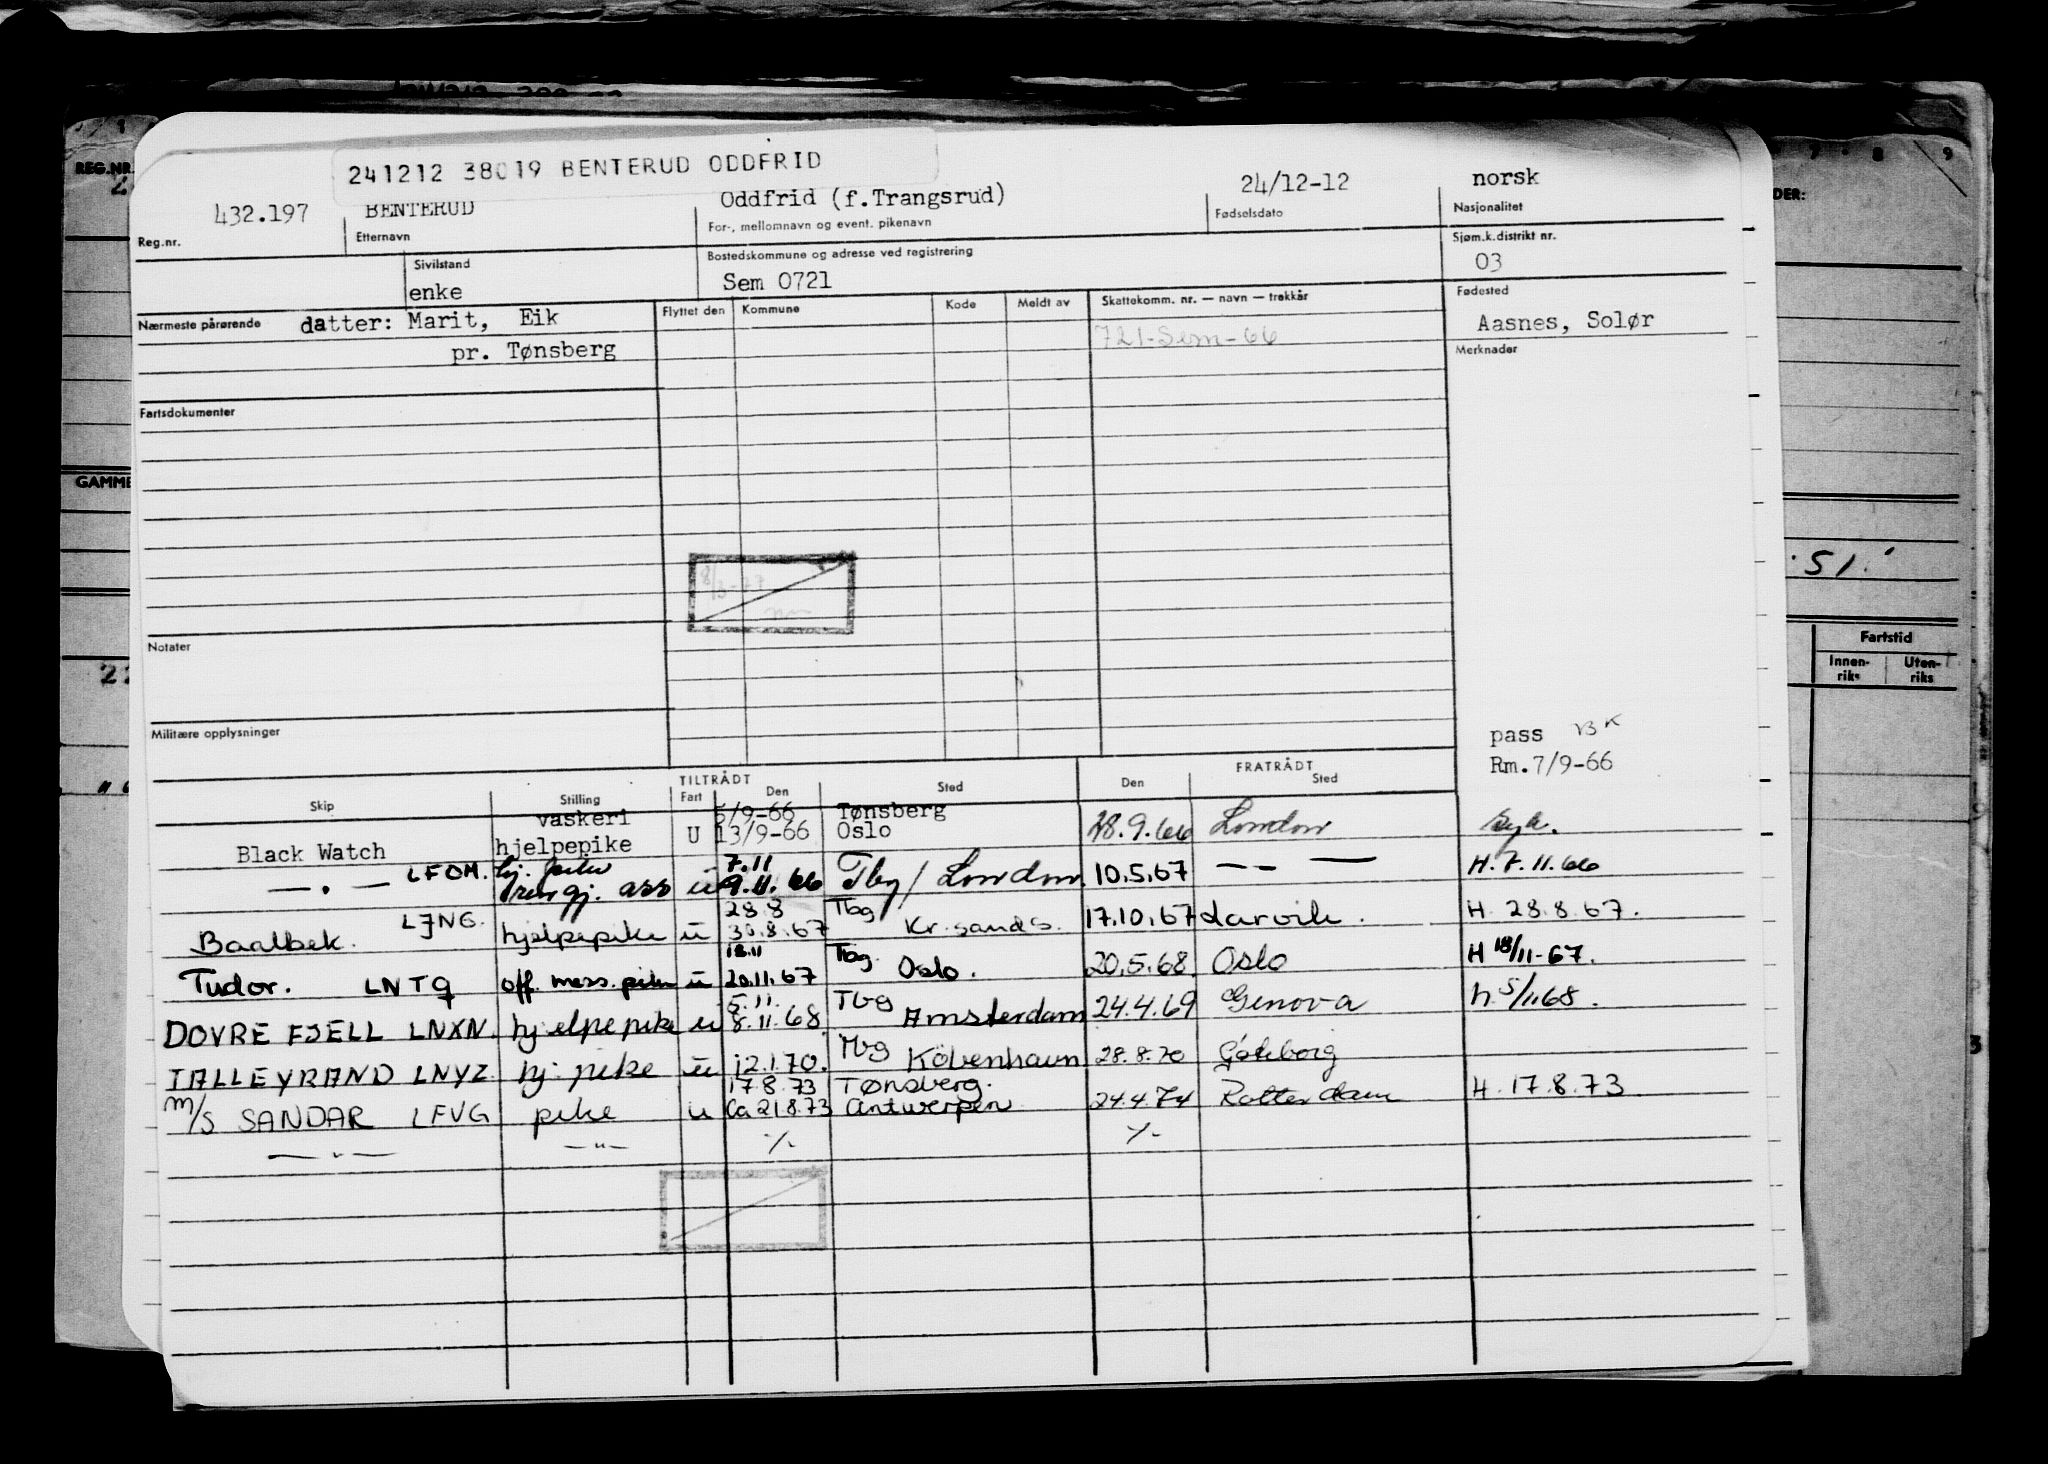 241212 38019 BENTERUD ODDFRID
432.197 BENTERUD Oddfrid (f.Trangsrud) 24/12-12 norsk
Reg.nr. Etternavn For-, mellomnavn og event. pikenavn Fødselsdato Nasjonalitet
Sivilstand Bostedskommune og adresse ved registrering Sjøm.k.distrikt nr.
enke Sem 0721 03
Nærmeste pårørende datter: Marit, Eik Flyttet den Kommune Kode Meldt av Skattekomm. nr. — navn — trekkår Fødested
pr. Tønsberg 721-Sem-66 Aasnes, Solør
Merknader
Fartsdokumenter
8/3-77
Notater
Militære opplysninger
pass BK
Rm.7/9-66
TILTRÅDT FRATRÅDT
Skip Stilling Fart Den Sted Den Sted
vaskeri 5/9-66 Tønsberg
Black Watch hjelpepike U 13/9-66 Oslo 28.9.66 London Syk.
— . — LFOM. hj. pike 7.11
rengj. ass u 9.11.66 Tbg/London 10.5.67 — — — H. 7.11.66
28.8 Tbg
Baalbek. LJNG. hjelpepike u 30.8.67 Kr.sands. 17.10.67 Larvik. H. 28.8.67.
18.11 Tbg.
Tudor. LNTQ off. mess. pike u 20.11.67 Oslo. 20.5.68. Oslo H 18/11-67.
5.11. Tbg
DOVRE FJELL LNXN. hjelpepike u 8.11.68. Amsterdam 24.4.69 Genova h. 5/11 68.
TALLEYRAND LNYZ. hj. pike u 12.1.70. Tbg Köbenhavn 28.8.70 Göteborg
17.8.73 Tønsberg.
M/S SANDAR LFVG pike u Ca 21.8.73 Antwerpen 24.4.74 Rotterdam H. 17.8.73
— " — — " — ·/- ·/-
REG.NR.
GAMME
22
7 8 9
DER:
51.
Fartstid
Innen-riks Uten-riks
3